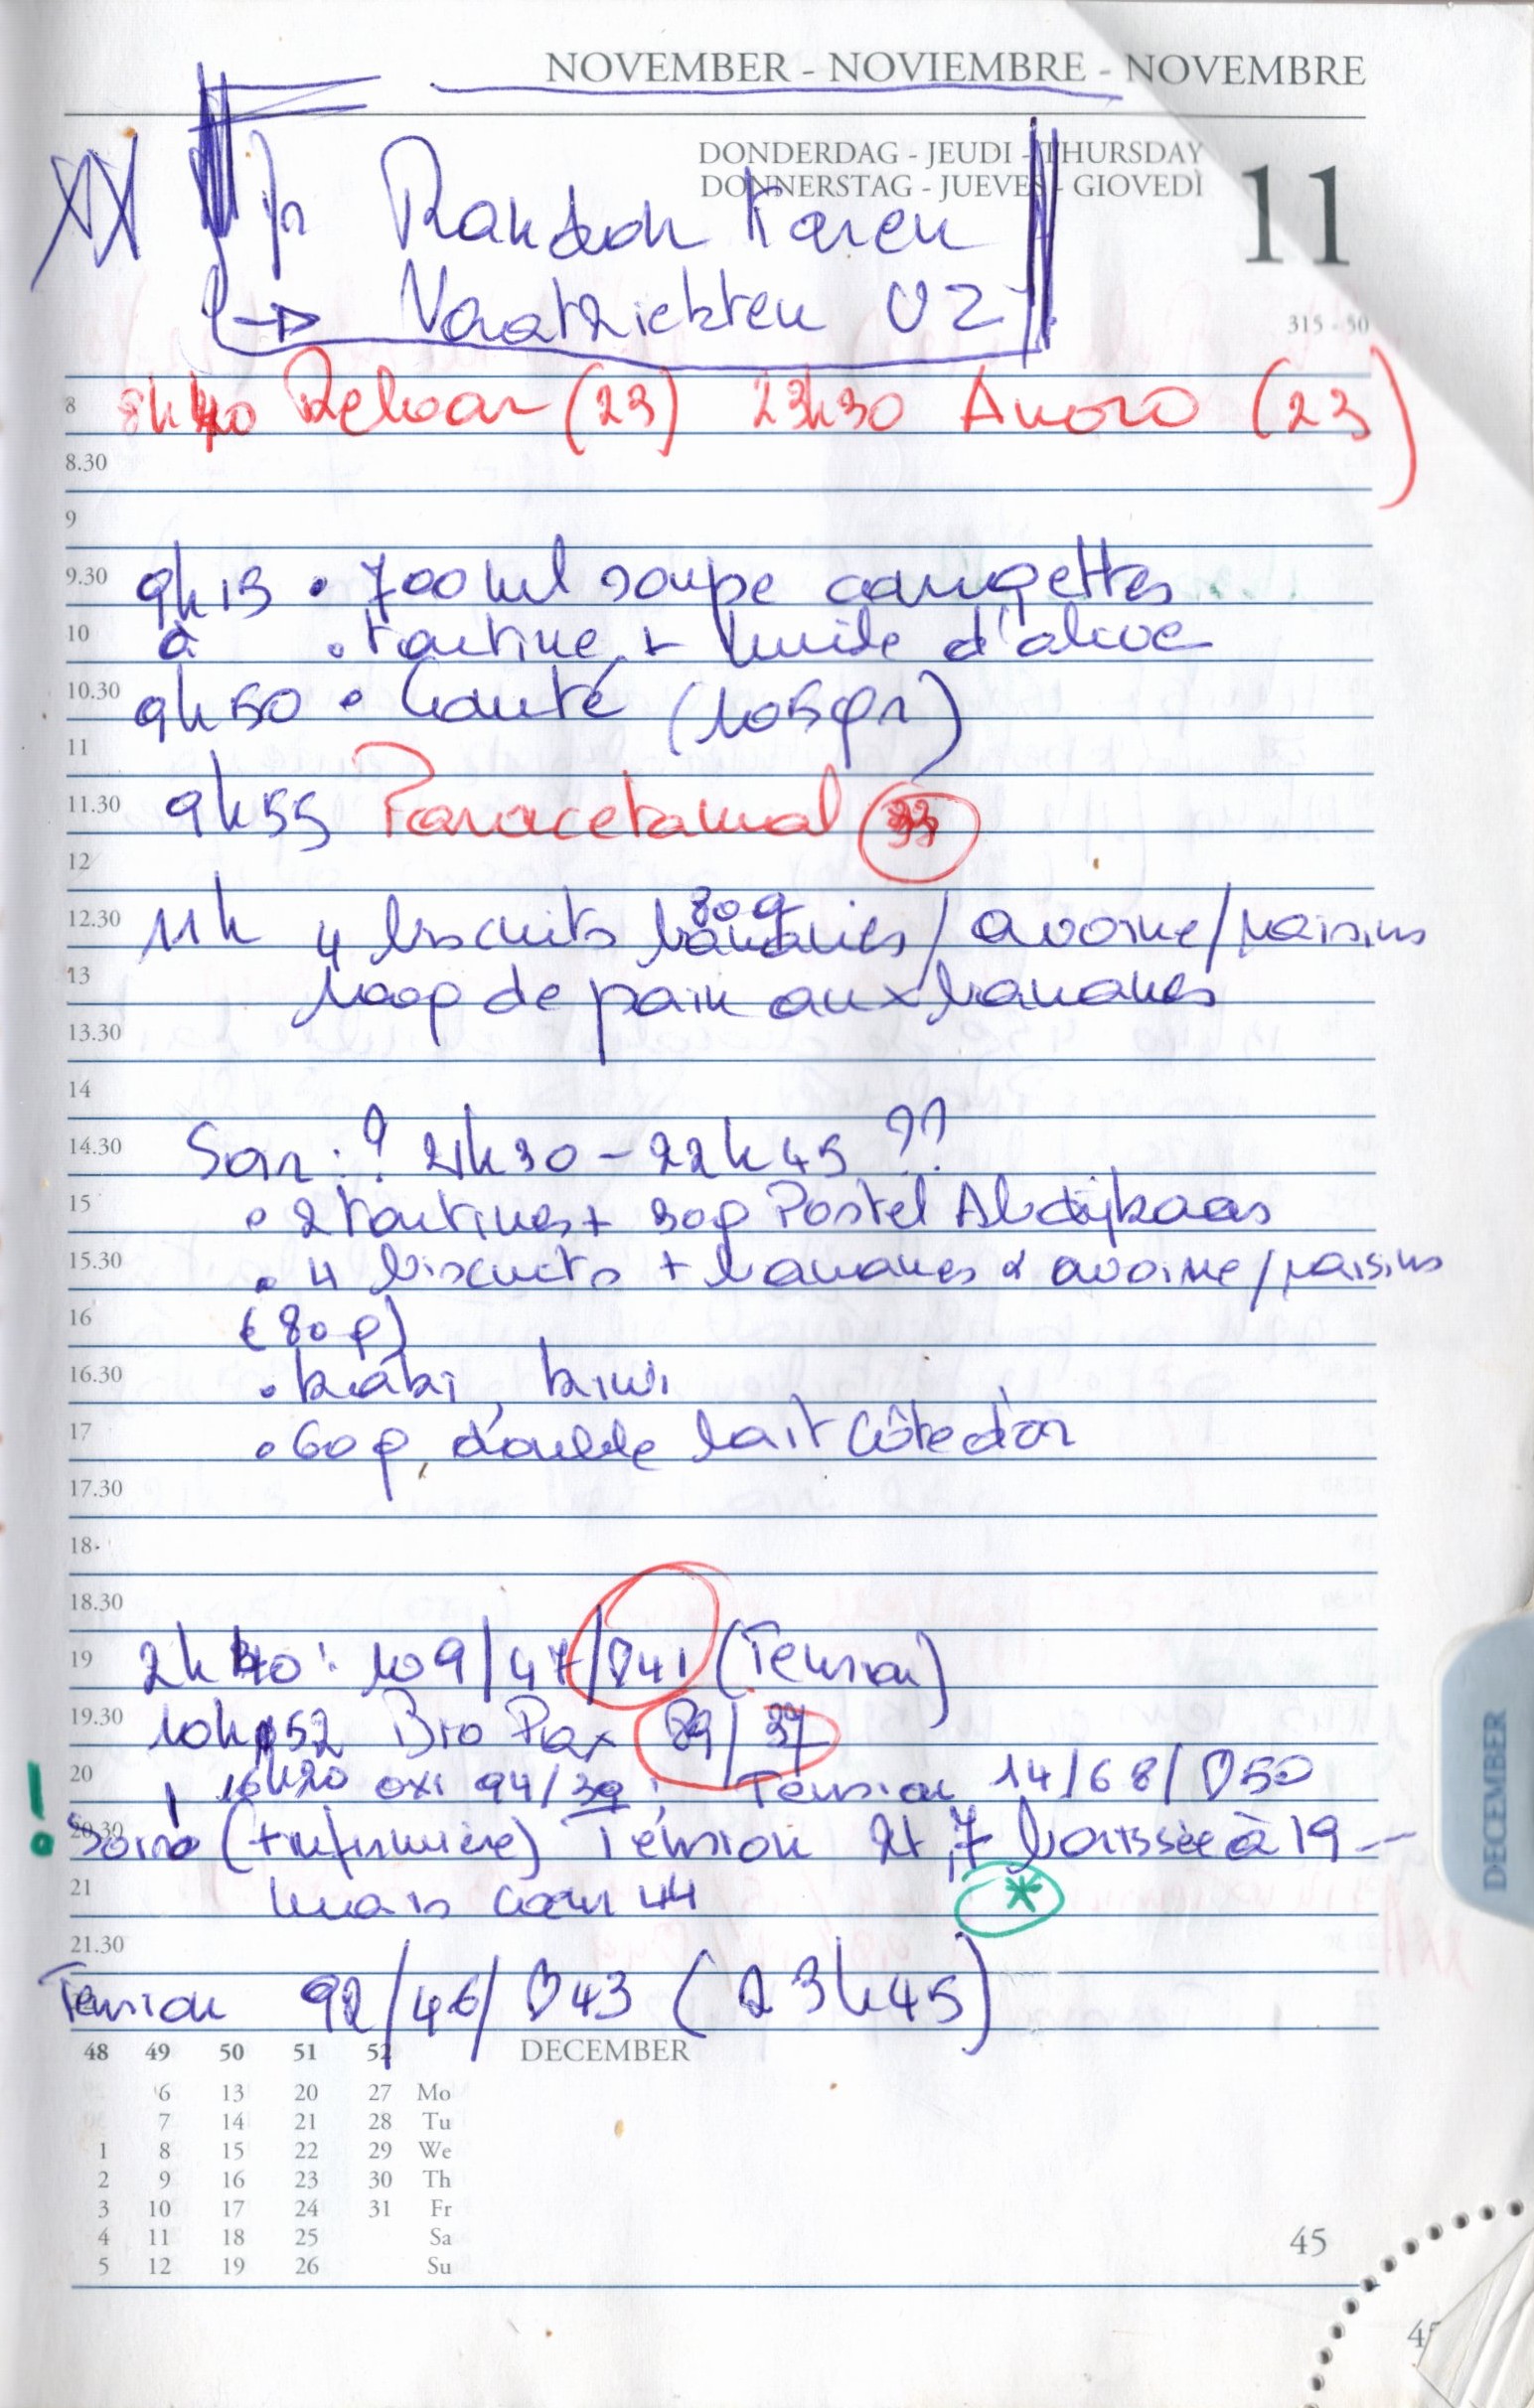 NOVEMBER - NOVIEMBRE - NOVEMBRE
DONDERDAG - JEUDI - THURSDAY
DONNERSTAG - JUEVES - GIOVEDÌ
11
XX Dr Karen
Vaatziekten UZ
315 - 50
8 8h40 Relvar (23) 23h30 Anoro (23)
8.30
9
9.30 9h15 • 700 ml soupe courgettes
10 à • tartine + huile d'olive
10.30 9h50 • (105gr)
11
11.30 9h55 Paracetamol 33
12
80g
12.30 11h 4 biscuits bananes/avoine/raisins
13 100g de pain aux bananes
13.30
14
14.30 Soir : ? 21h30 - 22h45 ??
15 • 2 tartines + 30g Postel Abdijkaas
15.30 • 4 biscuits + bananes & avoine/raisins
16 (80g)
16.30 • kaki, kiwi
17 • 60g double lait Côte d'or
17.30
18
18.30
19 2h40 : 109/47/♡41 (Tension)
19.30 10h52 89/37
20 16h20 oxi 94/39 ; Tension 14/68/♡50
20.30 ! (+infirmière) Tension 21,7 baissée à 19 -
21 mais coeur 44 *
21.30
Tension 92/46/♡43 (23h45)
48 49 50 51 52 DECEMBER
6 13 20 27 Mo
7 14 21 28 Tu
1 8 15 22 29 We
2 9 16 23 30 Th
3 10 17 24 31 Fr
4 11 18 25 Sa
5 12 19 26 Su
45
DECEMBER